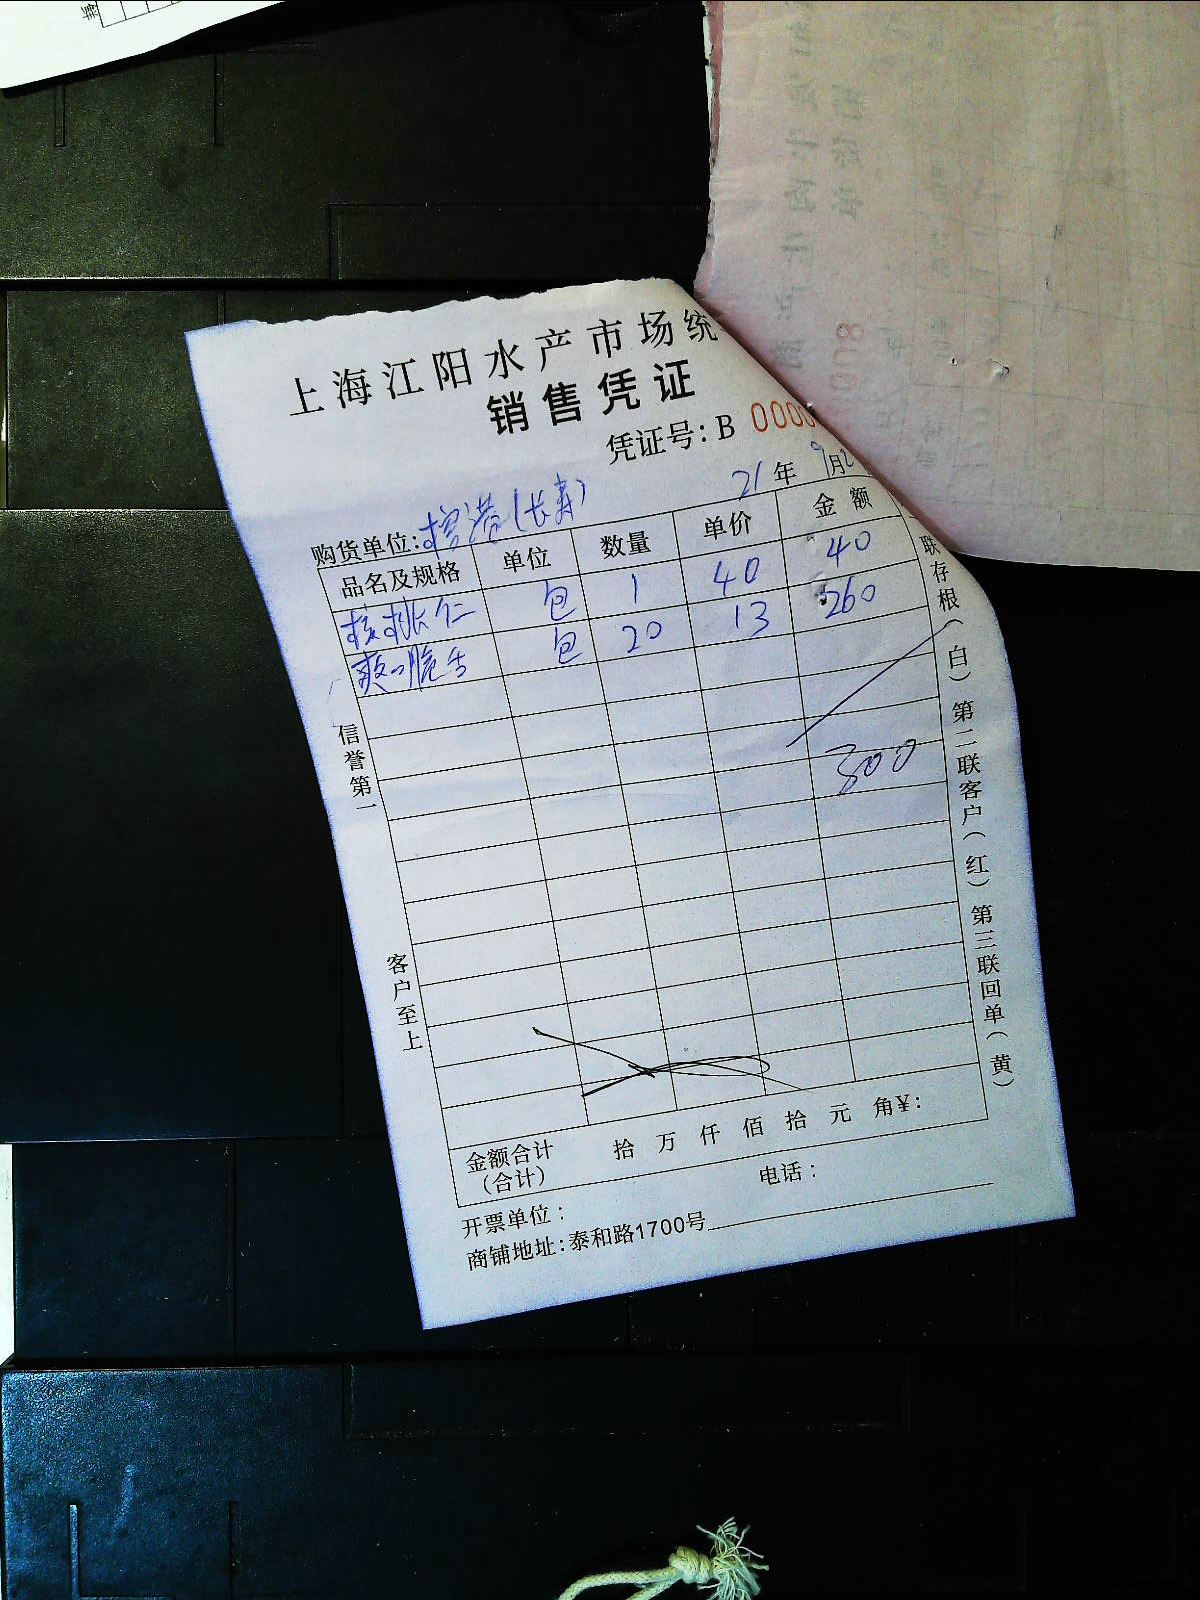 上海江阳水产市场统
销售凭证
凭证号：B 0000
21年9月2
购货单位：(长寿)
品名及规格 单位 数量 单价 金额
核桃仁 包 1 40 40
爽脆舌 包 20 13 260
300
信誉第一
客户至上
联存根（白）第二联客户（红）第三联回单（黄）
金额合计 拾 万 仟 佰 拾 元 角¥：
（合计）
开票单位： 电话：
商铺地址：泰和路1700号